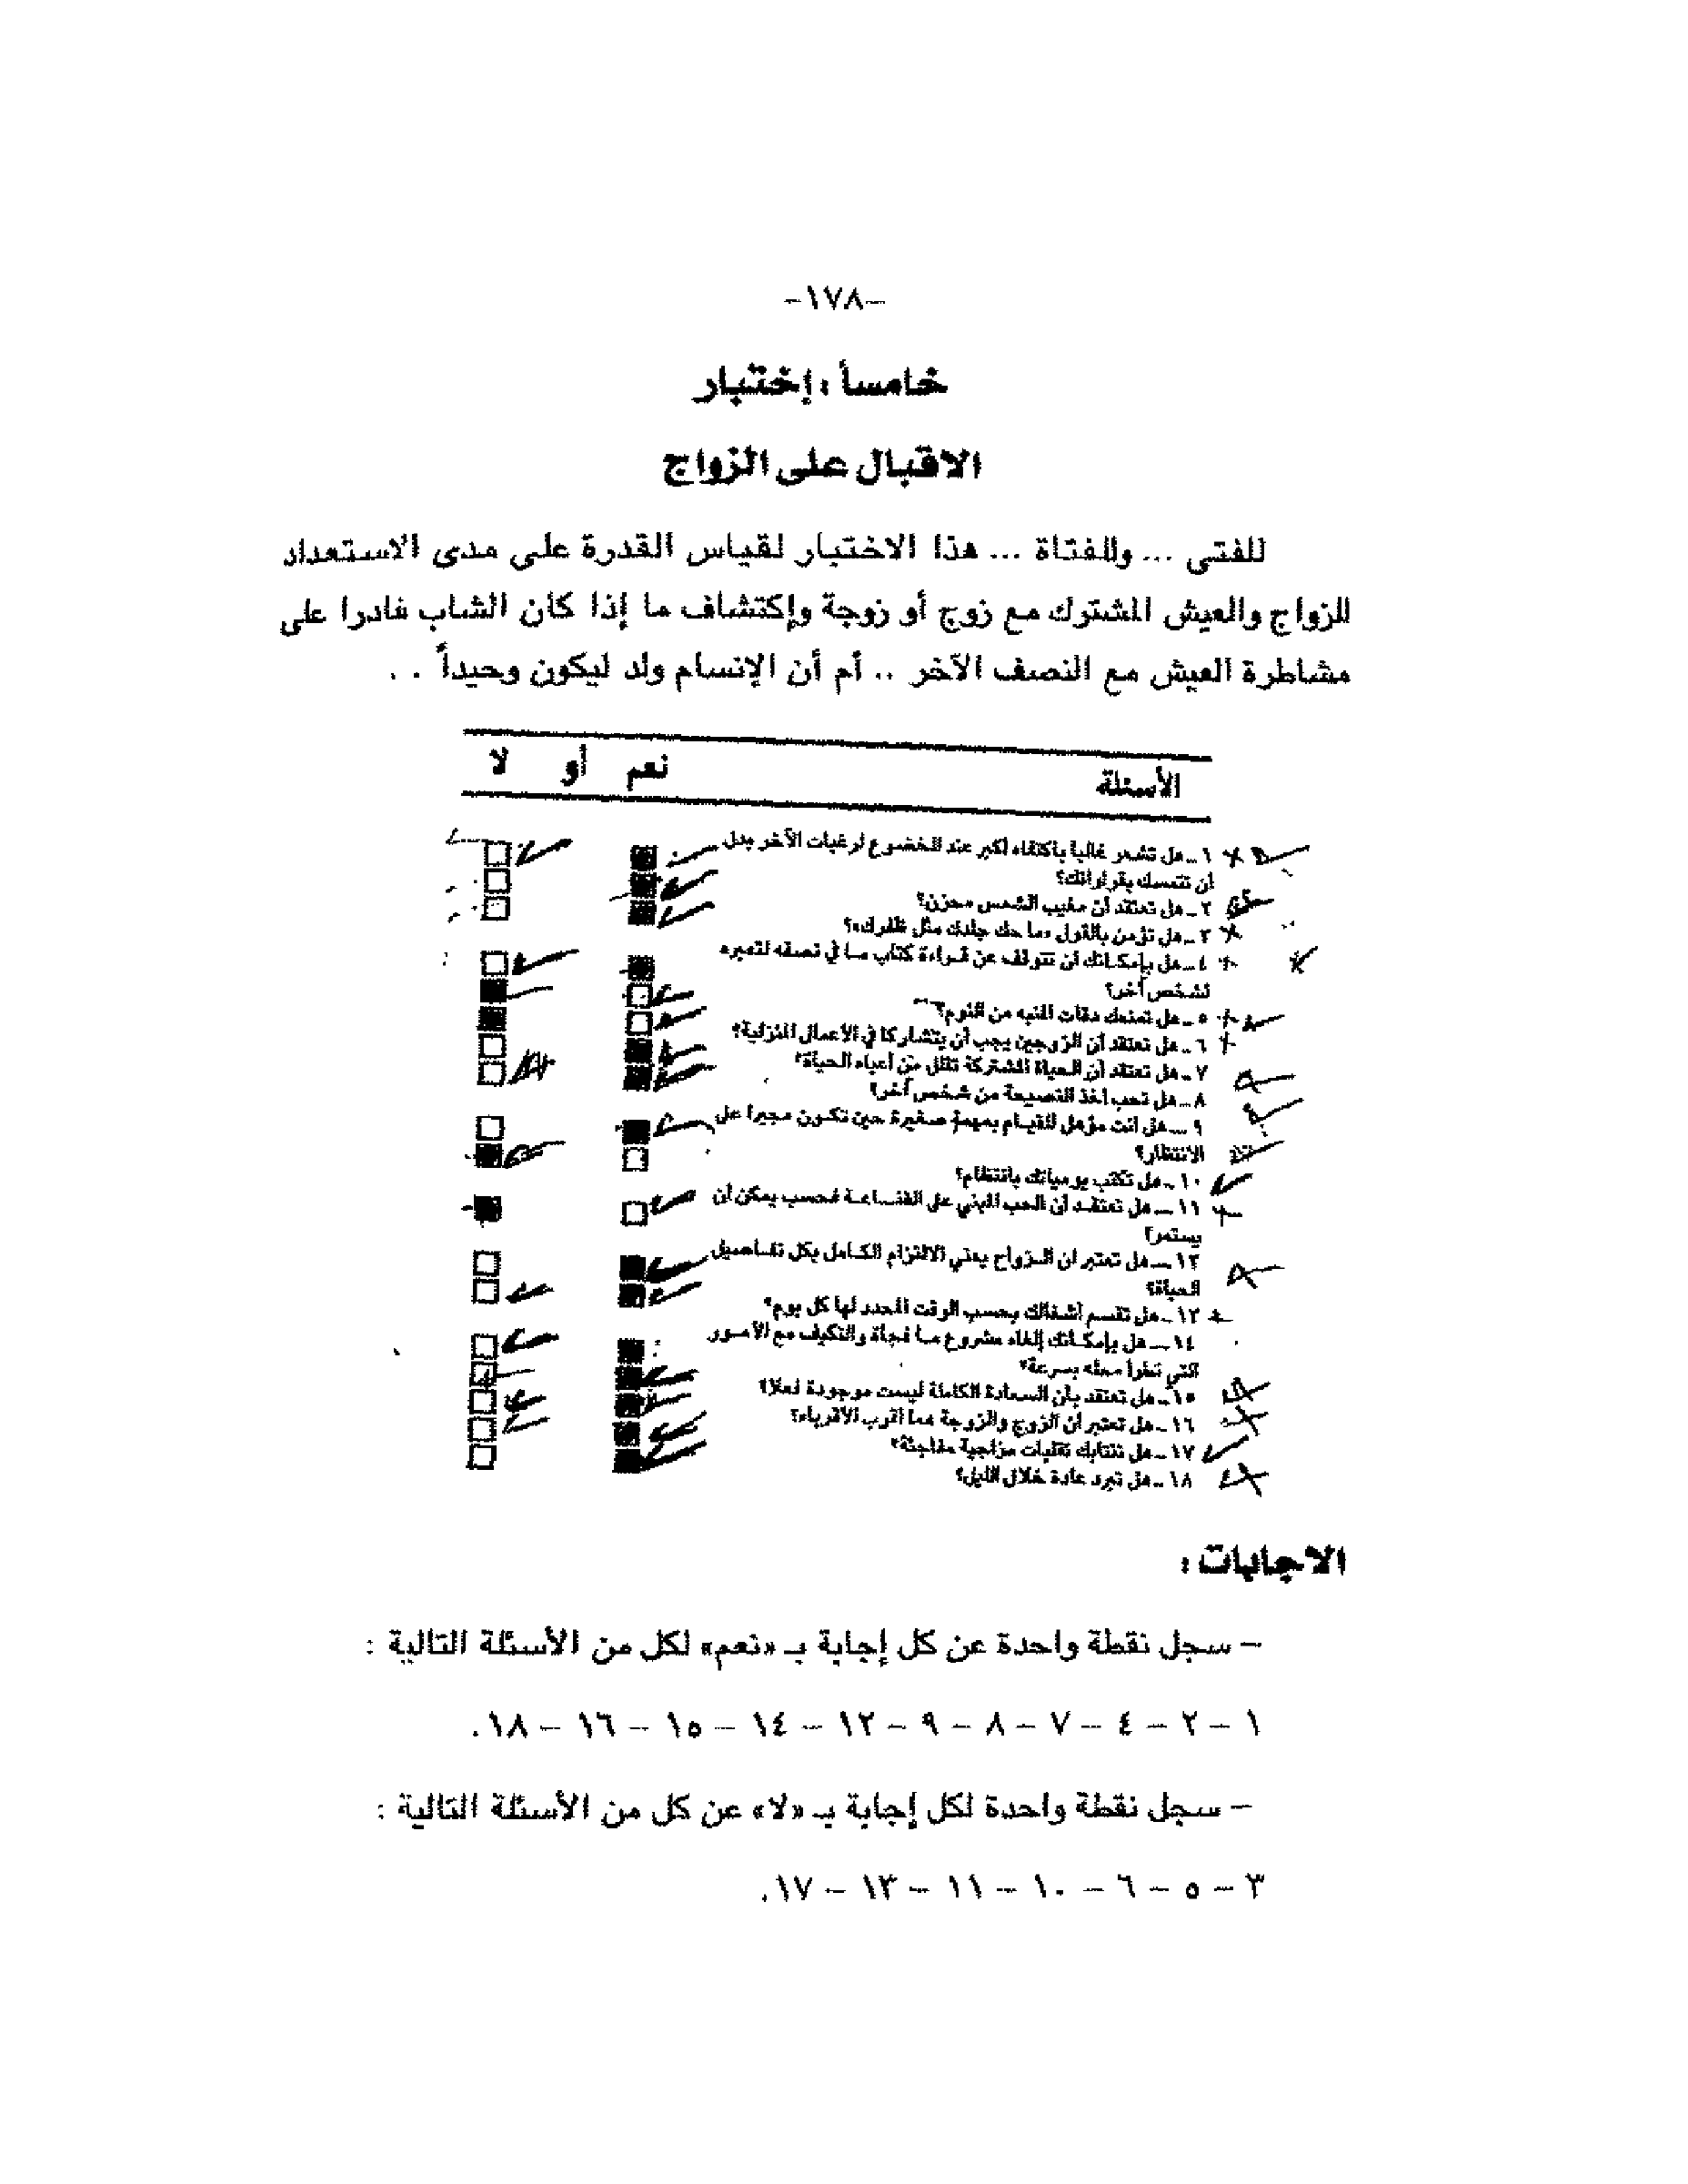 -١٧٨-
خامساً : إختبار
الاقبال على الزواج
للفتى ... وللفتاة ... هذا الاختبار لقياس القدرة على مدى الاستعداد
للزواج والعيش المشترك مع زوج أو زوجة وإكتشاف ما إذا كان الشاب قادرا على
مشاطرة العيش مع النصف الآخر .. أم أن الإنسام ولد ليكون وحيداً . .
الأسئلة نعم أو لا
١ ـ هل تشعر غالبا باكتفاء أكبر عند الخضوع لرغبات الآخر بدل
أن تتمسك بقراراتك؟
٢ ـ هل تعتقد أن مغيب الشمس محزن؟
٣ ـ هل تؤمن بالقول «ما حك جلدك مثل ظفرك»؟
٤ ـ هل بإمكانك ان تتوقف عن قراءة كتاب ما في نصفه لتعيره
لشخص آخر؟
٥ ـ هل تمنعك دقات المنبه من النوم؟
٦ ـ هل تعتقد أن الزوجين يجب أن يتشاركا في الأعمال المنزلية؟
٧ ـ هل تعتقد أن الحياة المشتركة تقلل من أعباء الحياة؟
٨ ـ هل تحب أخذ النصيحة من شخص آخر؟
٩ ـ هل انت مؤهل للقيام بمهمة صغيرة حين تكون مجبرا على
الانتظار؟
١٠ ـ هل تكتب يومياتك بانتظام؟
١١ ـ هل تعتقد أن الحب المبني على القناعة فحسب يمكن أن
يستمر؟
١٢ ـ هل تعتبر ان الزواج يعني الالتزام الكامل بكل تفاصيل
الحياة؟
١٣ ـ هل تقسم أشغالك بحسب الوقت المحدد لها كل يوم؟
١٤ ـ هل بإمكانك إلغاء مشروع ما فجأة والتكيف مع الأمور
التي تطرأ محله بسرعة؟
١٥ ـ هل تعتقد بأن السعادة الكاملة ليست موجودة فعلا؟
١٦ ـ هل تعتبر ان الزوج والزوجة هما أقرب الأقرباء؟
١٧ ـ هل تنتابك تقلبات مزاجية مفاجئة؟
١٨ ـ هل تبرد عادة خلال الليل؟
الاجابات :
– سجل نقطة واحدة عن كل إجابة بـ «نعم» لكل من الأسئلة التالية :
١ – ٢ – ٤ – ٧ – ٨ – ٩ – ١٢ – ١٤ – ١٥ – ١٦ – ١٨.
– سجل نقطة واحدة لكل إجابة بـ «لا» عن كل من الأسئلة التالية :
٣ – ٥ – ٦ – ١٠ – ١١ – ١٣ – ١٧.